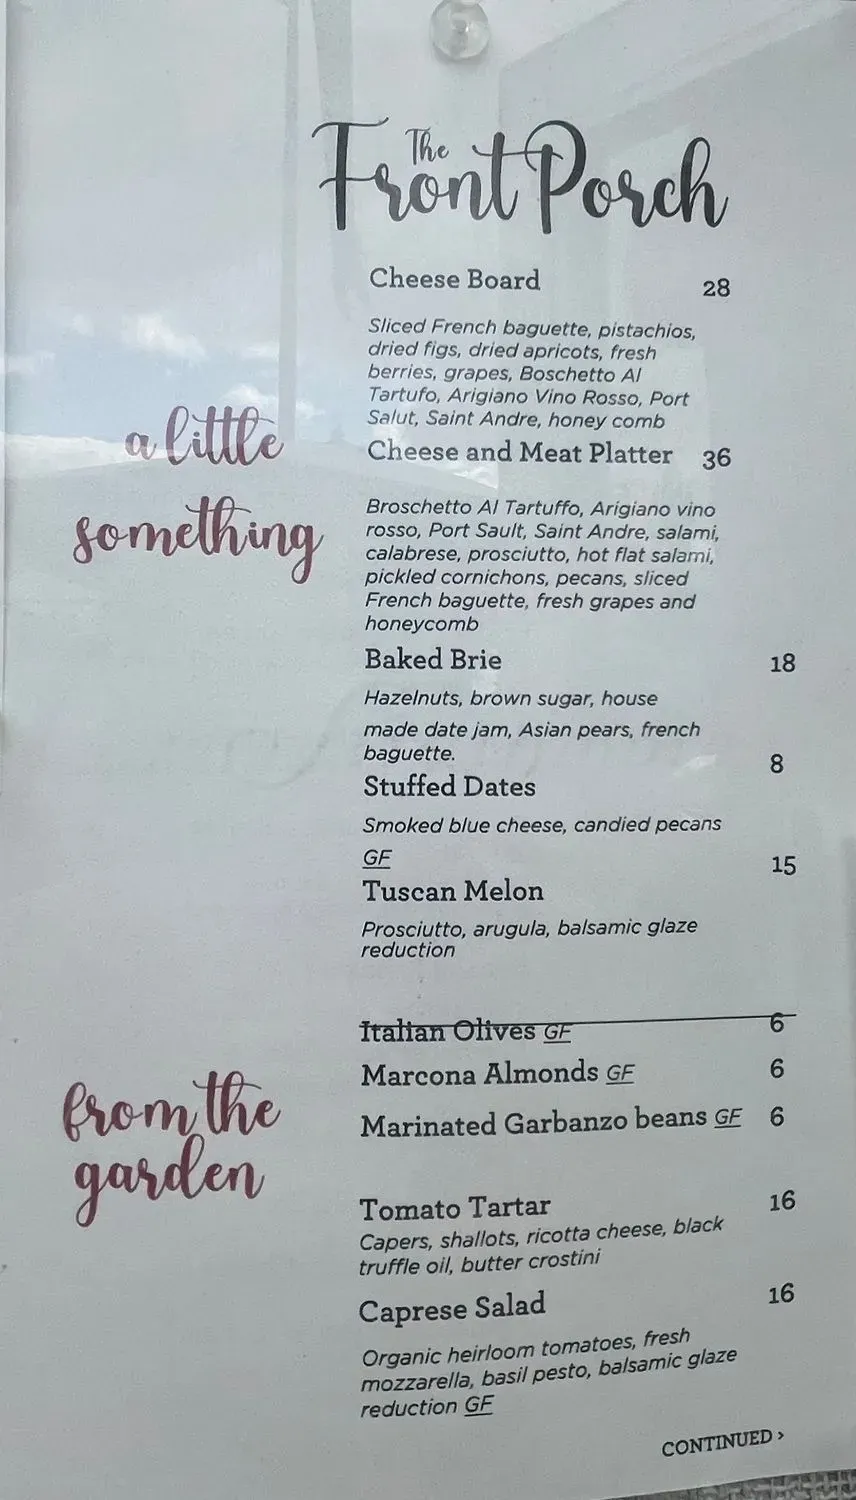 The
Front Porch
Cheese Board 28
Sliced French baguette, pistachios,
dried figs, dried apricots, fresh
berries, grapes, Boschetto Al
Tartufo, Arigiano Vino Rosso, Port
Salut, Saint Andre, honey comb
a little
something
Cheese and Meat Platter 36
Broschetto Al Tartuffo, Arigiano vino
rosso, Port Sault, Saint Andre, salami,
calabrese, prosciutto, hot flat salami,
pickled cornichons, pecans, sliced
French baguette, fresh grapes and
honeycomb
Baked Brie 18
Hazelnuts, brown sugar, house
made date jam, Asian pears, french
baguette.
Stuffed Dates 8
Smoked blue cheese, candied pecans
GF
Tuscan Melon 15
Prosciutto, arugula, balsamic glaze
reduction
Italian Olives GF 6
Marcona Almonds GF 6
Marinated Garbanzo beans GF 6
from the
garden
Tomato Tartar 16
Capers, shallots, ricotta cheese, black
truffle oil, butter crostini
Caprese Salad 16
Organic heirloom tomatoes, fresh
mozzarella, basil pesto, balsamic glaze
reduction GF
CONTINUED >